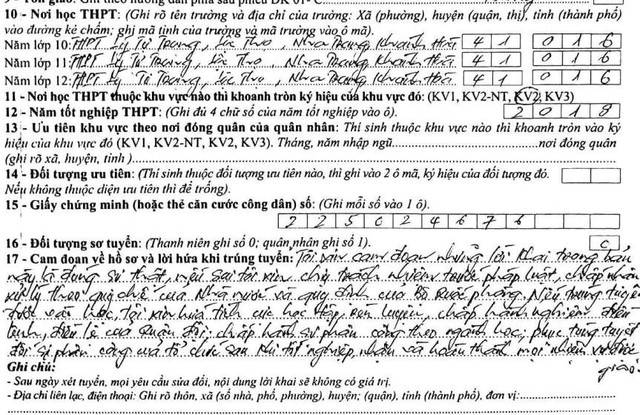 10 - Nơi học THPT: (Ghi rõ tên trường và địa chỉ của trường: Xã (phường), huyện (quận, thị), tỉnh (thành phố)
vào đường kẻ chấm; ghi mã tỉnh của trường và mã trường vào ô mã).
Năm lớp 10: THPT Lý Tự Trọng, Lộc Thọ, Nha Trang Khánh Hoà 4 1 0 1 6
Năm lớp 11: THPT Lý Tự Trọng, Lộc Thọ, Nha Trang Khánh Hoà 4 1 0 1 6
Năm lớp 12: THPT Lý Tự Trọng, Lộc Thọ, Nha Trang Khánh Hoà 4 1 0 1 6
11 - Nơi học THPT thuộc khu vực nào thì khoanh tròn ký hiệu của khu vực đó: (KV1, KV2-NT, KV2, KV3)
12 - Năm tốt nghiệp THPT: (Ghi đủ 4 chữ số của năm tốt nghiệp vào ô). 2 0 1 8
13 - Ưu tiên khu vực theo nơi đóng quân của quân nhân: Thí sinh thuộc khu vực nào thì khoanh tròn vào ký
hiệu của khu vực đó (KV1, KV2-NT, KV2, KV3). Tháng, năm nhập ngũ..........nơi đóng quân
(ghi rõ xã, huyện, tỉnh )..........
14 - Đối tượng ưu tiên: (Thí sinh thuộc đối tượng ưu tiên nào, thì ghi vào 2 ô mã, ký hiệu của đối tượng đó.
Nếu không thuộc diện ưu tiên thì để trống).
15 - Giấy chứng minh (hoặc thẻ căn cước công dân) số: (Ghi mỗi số vào 1 ô).
2 2 5 0 2 4 6 7 6
16 - Đối tượng sơ tuyển: (Thanh niên ghi số 0; quân nhân ghi số 1).
17 - Cam đoan về hồ sơ và lời hứa khi trúng tuyển: Tôi xin cam đoan những lời khai trong bản
này là đúng sự thật, nếu sai tôi xin chịu trách nhiệm trước pháp luật, chấp nhận
xử lý theo quy chế của Nhà nước và quy định của Bộ Quốc phòng. Nếu trúng tuyển
được vào học, tôi xin hứa tích cực học tập, rèn luyện, chấp hành nghiêm điều
lệnh, điều lệ của Quân đội; chấp hành sự phân công theo ngành học; phục tùng tuyệt
đối sự phân công của tổ chức sau khi tốt nghiệp, nhận và hoàn thành mọi nhiệm vụ được
giao.
Ghi chú:
- Sau ngày xét tuyển, mọi yêu cầu sửa đổi, nội dung lời khai sẽ không có giá trị.
- Địa chỉ liên lạc, điện thoại: Ghi rõ thôn, xã (số nhà, phố, phường), huyện; (quận), tỉnh (thành phố), đơn vị:..........